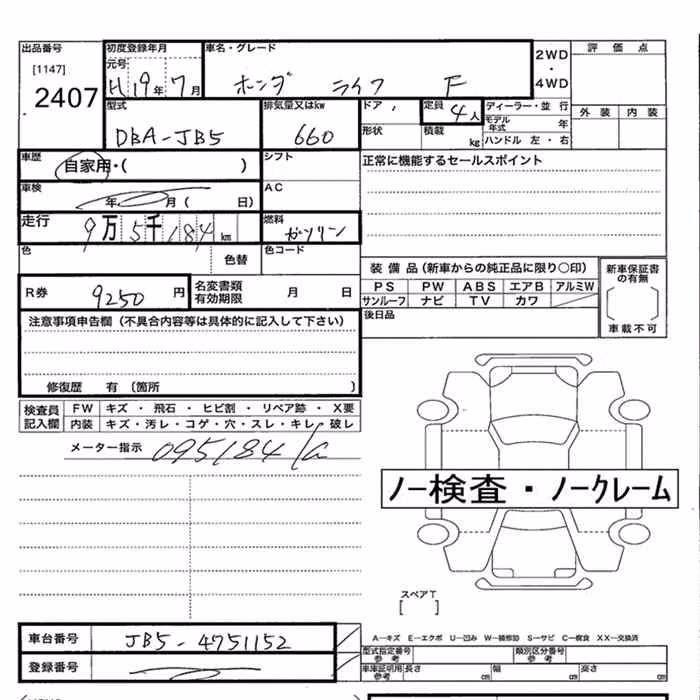 出品番号
[1147]
2407
初度登録年月
元号
H19年 7月
車名・グレード
ホンダ ライフ F
2WD
・
4WD
評 価 点
外 装 内 装
型式
DBA-JB5
排気量又はkw
660
ドア
定員 4人
形状
積載 kg
ディーラー・並 行
モデル年式 年
ハンドル 左・右
車歴
自家用・( )
シフト
正常に機能するセールスポイント
車検
年 月( 日)
AC
走行
9万5千184km
燃料
ガソリン
色
色替
色コード
装 備 品 (新車からの純正品に限り○印)
PS PW ABS エアB アルミW
サンルーフ ナビ TV カワ
新車保証書の有無
車載不可
R券 9250円
名変書類有効期限 月 日
後日品
注意事項申告欄(不具合内容等は具体的に記入して下さい)
修復歴 有(箇所 )
検査員記入欄
FW キズ・飛石・ヒビ割・リペア跡・X要
内装 キズ・汚レ・コゲ・穴・スレ・キレ・破レ
メーター指示 095184
ノー検査・ノークレーム
スペアT
[ ]
車台番号 JB5-4751152
登録番号
A—キズ E—エクボ U—凹み W—補修跡 S—サビ C—腐食 XX—交換済
型式指定番号参考
類別区分番号参考
車庫証明用参考 長さ cm 幅 cm 高さ cm